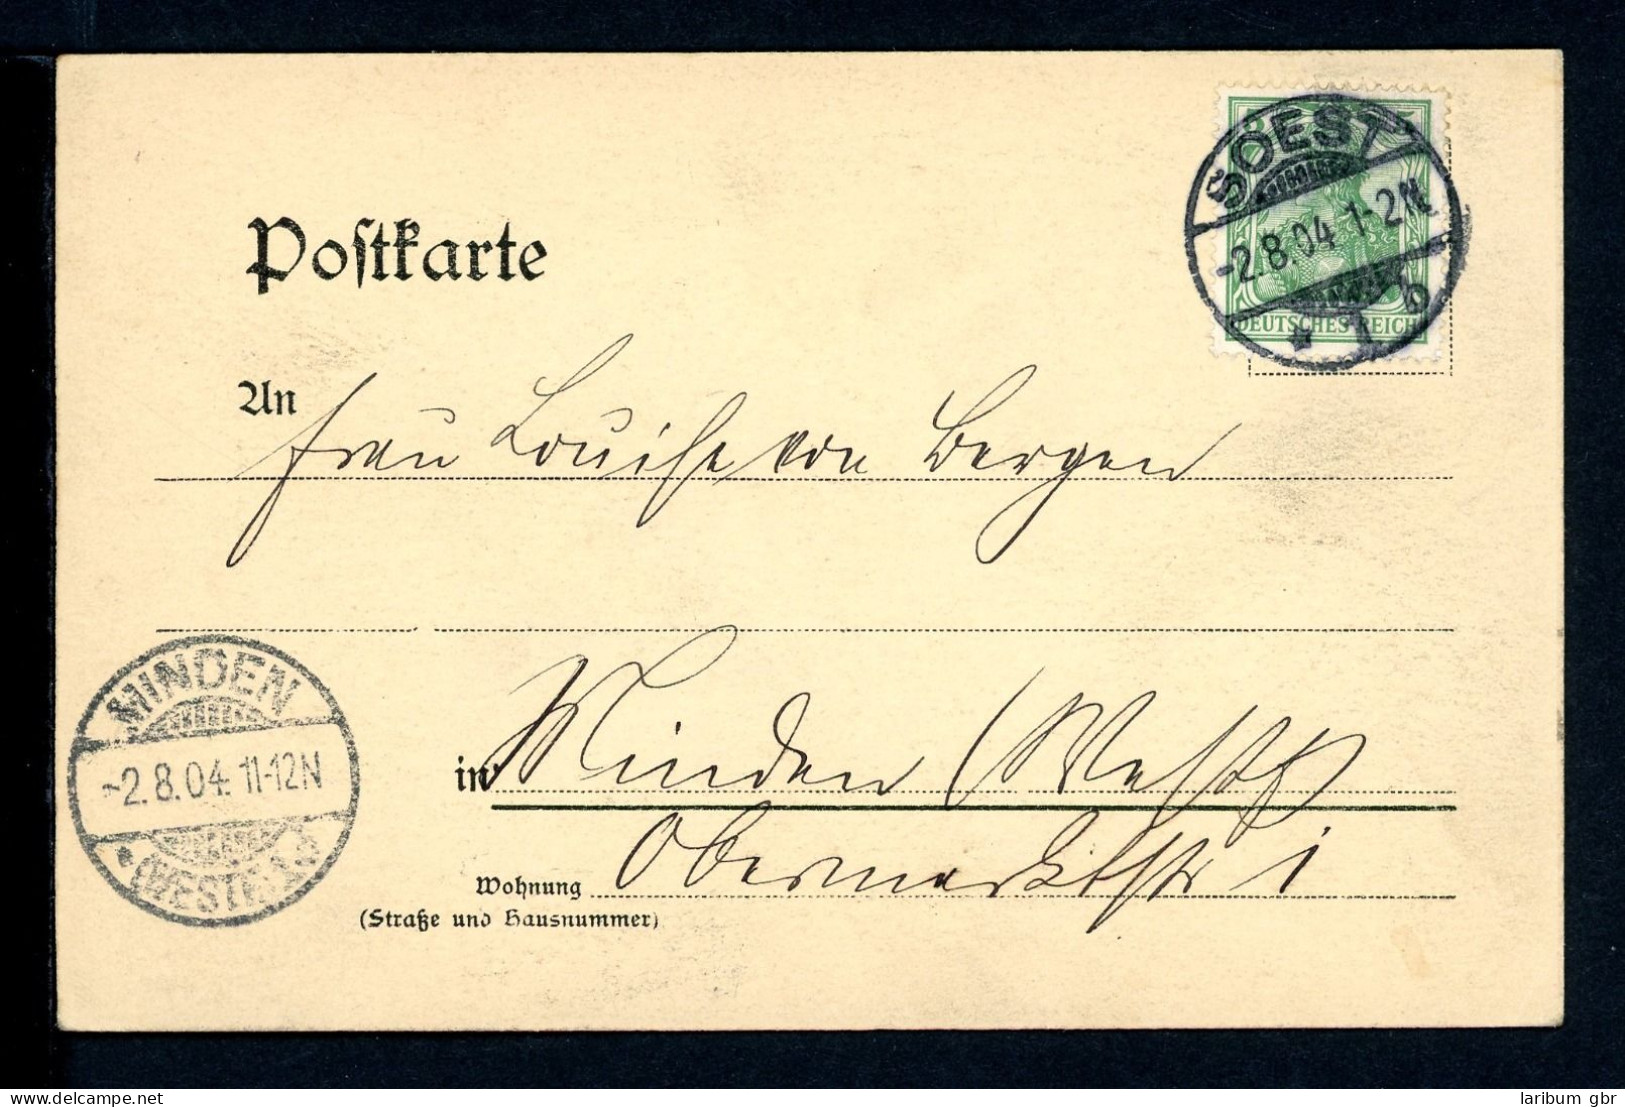 SOEST
-2.8.04 1-2N
* 1 b
DEUTSCHES REICH
Postkarte
An Frau Louise von Bergen
MINDEN
-2.8.04. 11-12N
* (WESTF.) 1
in Minden (Westf)
Wohnung Obermarktstr 1
(Straße und Hausnummer)
delcampe.net
laribum gbr